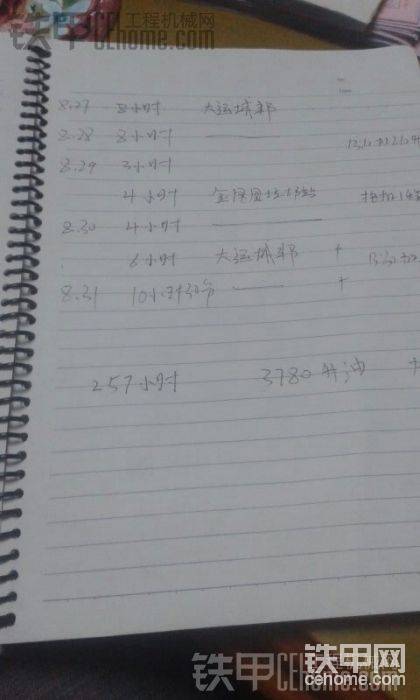 铁甲 工程机械网
CEhome.com
8.27 8小时 大运城邦
8.28 8小时 ——
8.29 3小时
4小时
8.30 4小时 ——
6小时 大运城邦 +
8.31 10小时30分 —— +
257小时 3780升油
铁甲网
cehome.com
铁甲 CEhome.com